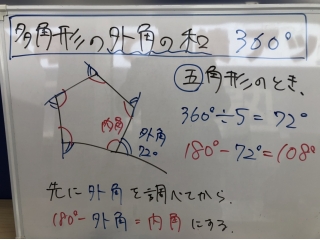 多角形の外角の和 360°
五角形のとき、
360°÷5=72°
180°-72°=108°
内角
外角
72°
先に外角を調べてから、
180°-外角=内角にする